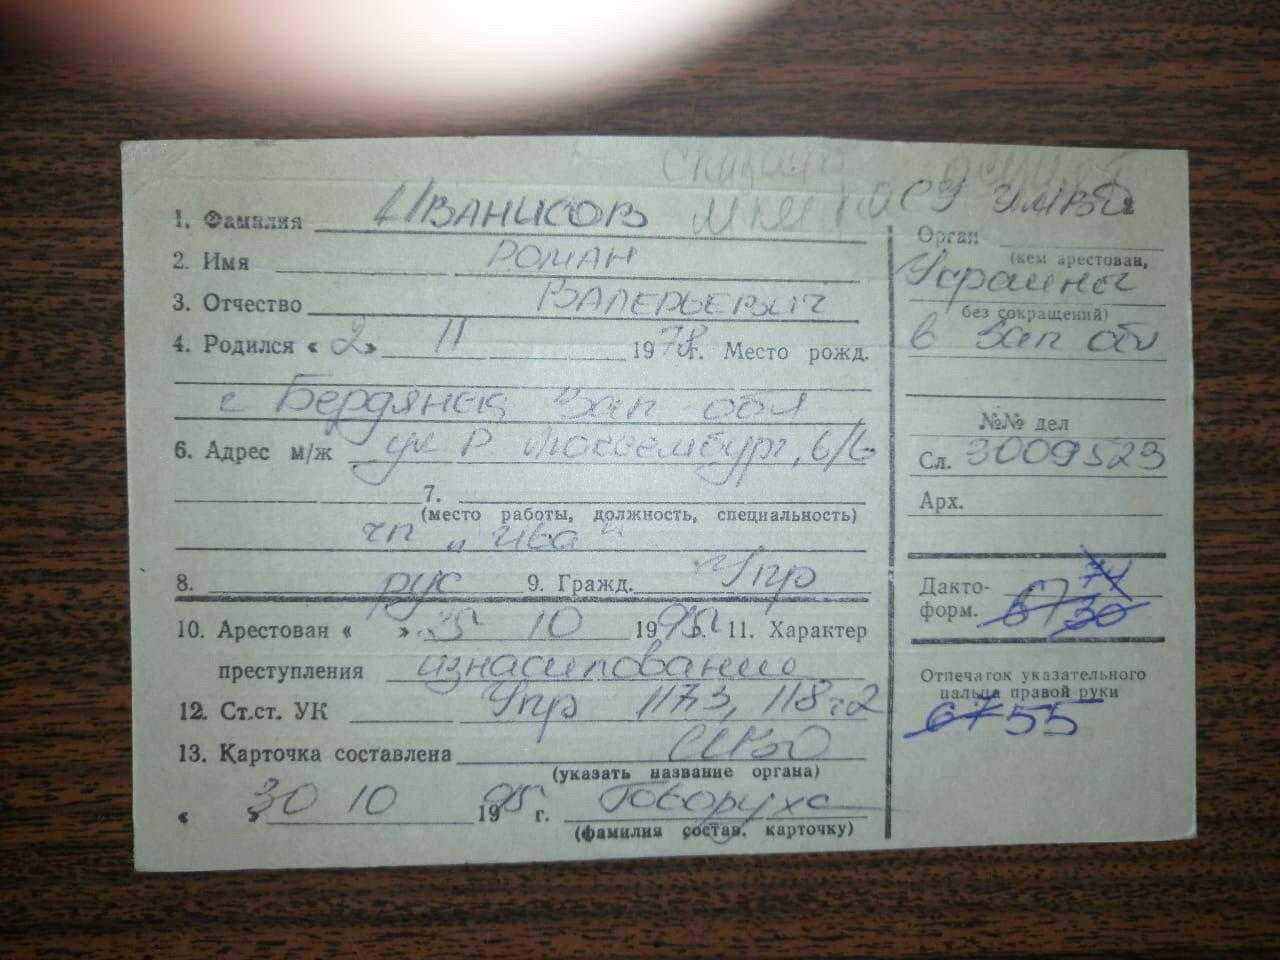 1. Фамилия Иванисов
2. Имя Роман
3. Отчество Валерьевич
4. Родился «2» 11 1978г. Место рожд.
г Бердянск Зап обл
6. Адрес м/ж ул Р Люксембург, 6/6
7.
(место работы, должность, специальность)
чп „Ива"
8. рус 9. Гражд. Укр
10. Арестован « » 25 10 1995г. 11. Характер
преступления изнасилование
12. Ст.ст. УК Укр 117 3, 118 ч2
13. Карточка составлена
(указать название органа)
« » 30 10 1995 г. Говоруха
(фамилия состав. карточку)
СУ УМВД
Орган
(кем арестован,
Украины
без сокращений)
в Зап обл
№№ дел
Сл. 3009523
Арх.
Дакто-
форм. 67 30
74
Отпечаток указательного
пальца правой руки
67 55